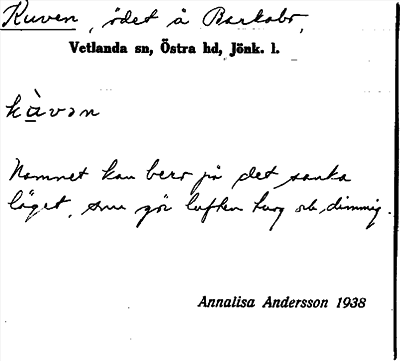 Kuven, ödet å Barkabo,
Vetlanda sn, Östra hd, Jönk. l.
kàvən
Namnet kan bero på det sanka
läget, som gör luften tung och dimmig.
Annalisa Andersson 1938